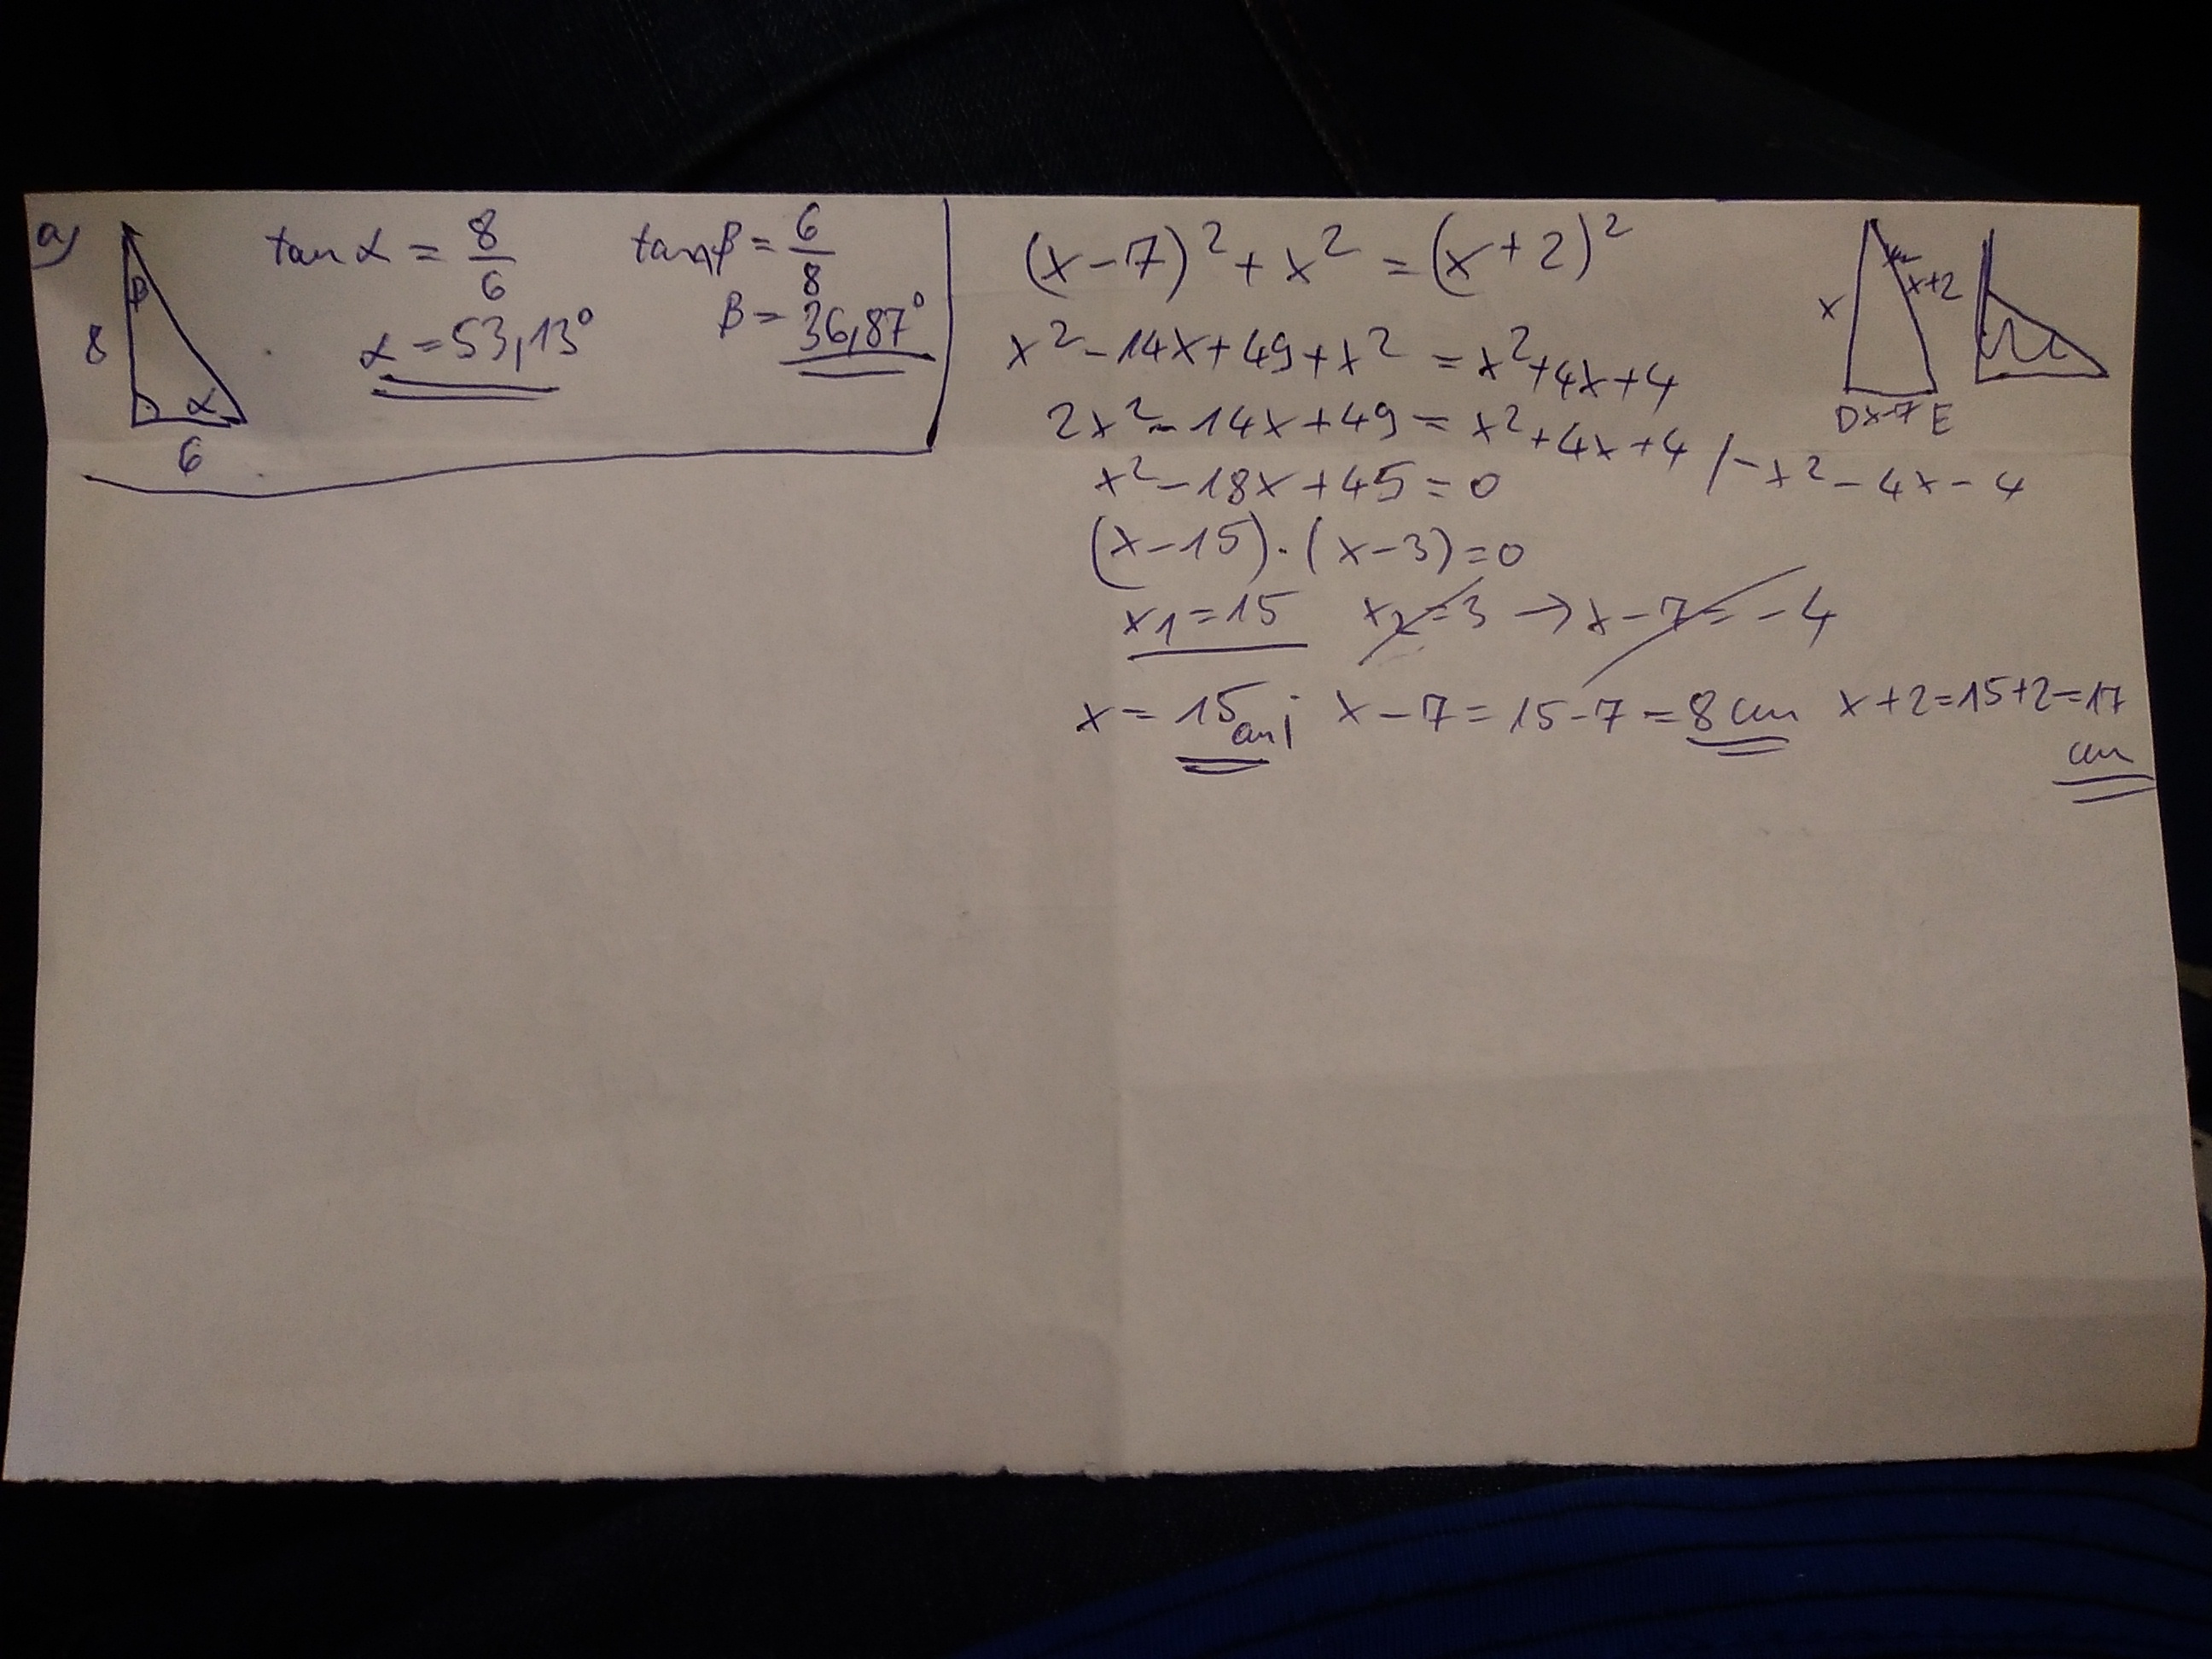 a)
β
8
α
6
tan α = 8/6
α = 53,13°
tan β = 6/8
β = 36,87°
(x-7)² + x² = (x+2)²
x² - 14x + 49 + x² = x² + 4x + 4
2x² - 14x + 49 = x² + 4x + 4 / -x² - 4x - 4
x² - 18x + 45 = 0
(x-15)·(x-3) = 0
x1 = 15 x2 = 3 → x-7 = -4
x = 15 cm; x-7 = 15-7 = 8 cm x+2 = 15+2 = 17
cm
x
x+2
D x-7 E